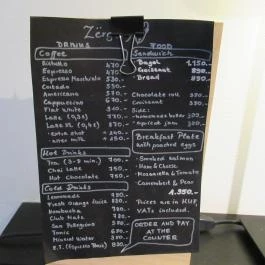 Zërg
DRINKS
Coffee
Ristretto 470.-
Espresso 470.-
Espresso Macchiato 530.-
Cortado 550.-
Americano 550.-
Cappuccino 670.-
Flat White
Latte
Latte
- extra shot + 240.-
- other milk + 250.-
Hot Drinks
Tea 700.-
Chai Latte 750.-
Hot Chocolate 750.-
Cold Drinks
Lemonade
Fresh Orange Juice
Kombucha
Club Mate
San Pellegrino
Tonic
Mineral Water
E.T. (Espresso Tonic)
FOOD
Sandwich
- Bagel 1.150.-
- Croissant 890.-
- Bread 890.-
Chocolate roll
Croissant
Side:
- homemade butter
- apricot jam
Breakfast Plate
with poached eggs
- Smoked salmon
- Ham & Cheese
- Mozzarella & Tomato
- Camembert & Pear
Prices are in HUF,
VATs included.
ORDER AND PAY
AT THE
COUNTER